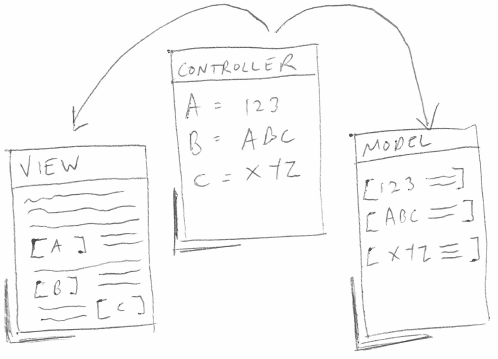 CONTROLLER
A = 123
B = ABC
C = XYZ
VIEW
[A]
[B]
[C]
MODEL
[123 ]
[ABC ]
[XYZ ]